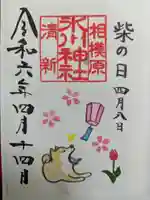 柴の日 四月八日
相模原
氷川神社
清新
令和六年四月十四日